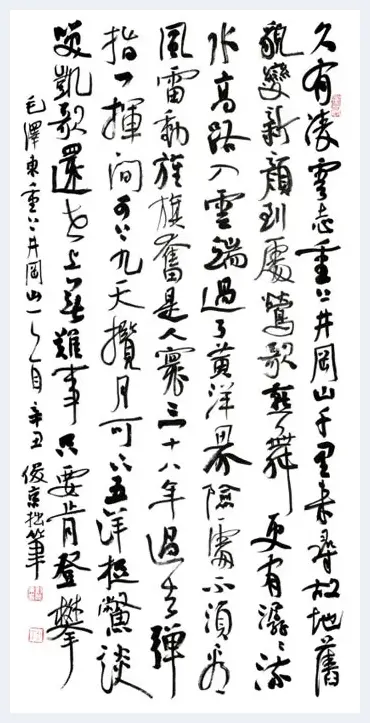 久有凌雲志重上井岡山千里來尋故地舊
貌變新顏到處鶯歌燕舞更有潺潺流
水高路入雲端過了黃洋界險處不須看
風雷動旌旗奮是人寰三十八年過去彈
指一揮間可以九天攬月可以五洋捉鱉談
笑凱歌還世上無難事只要肯登攀
毛澤東重上井岡山 辛丑 俊京拙筆